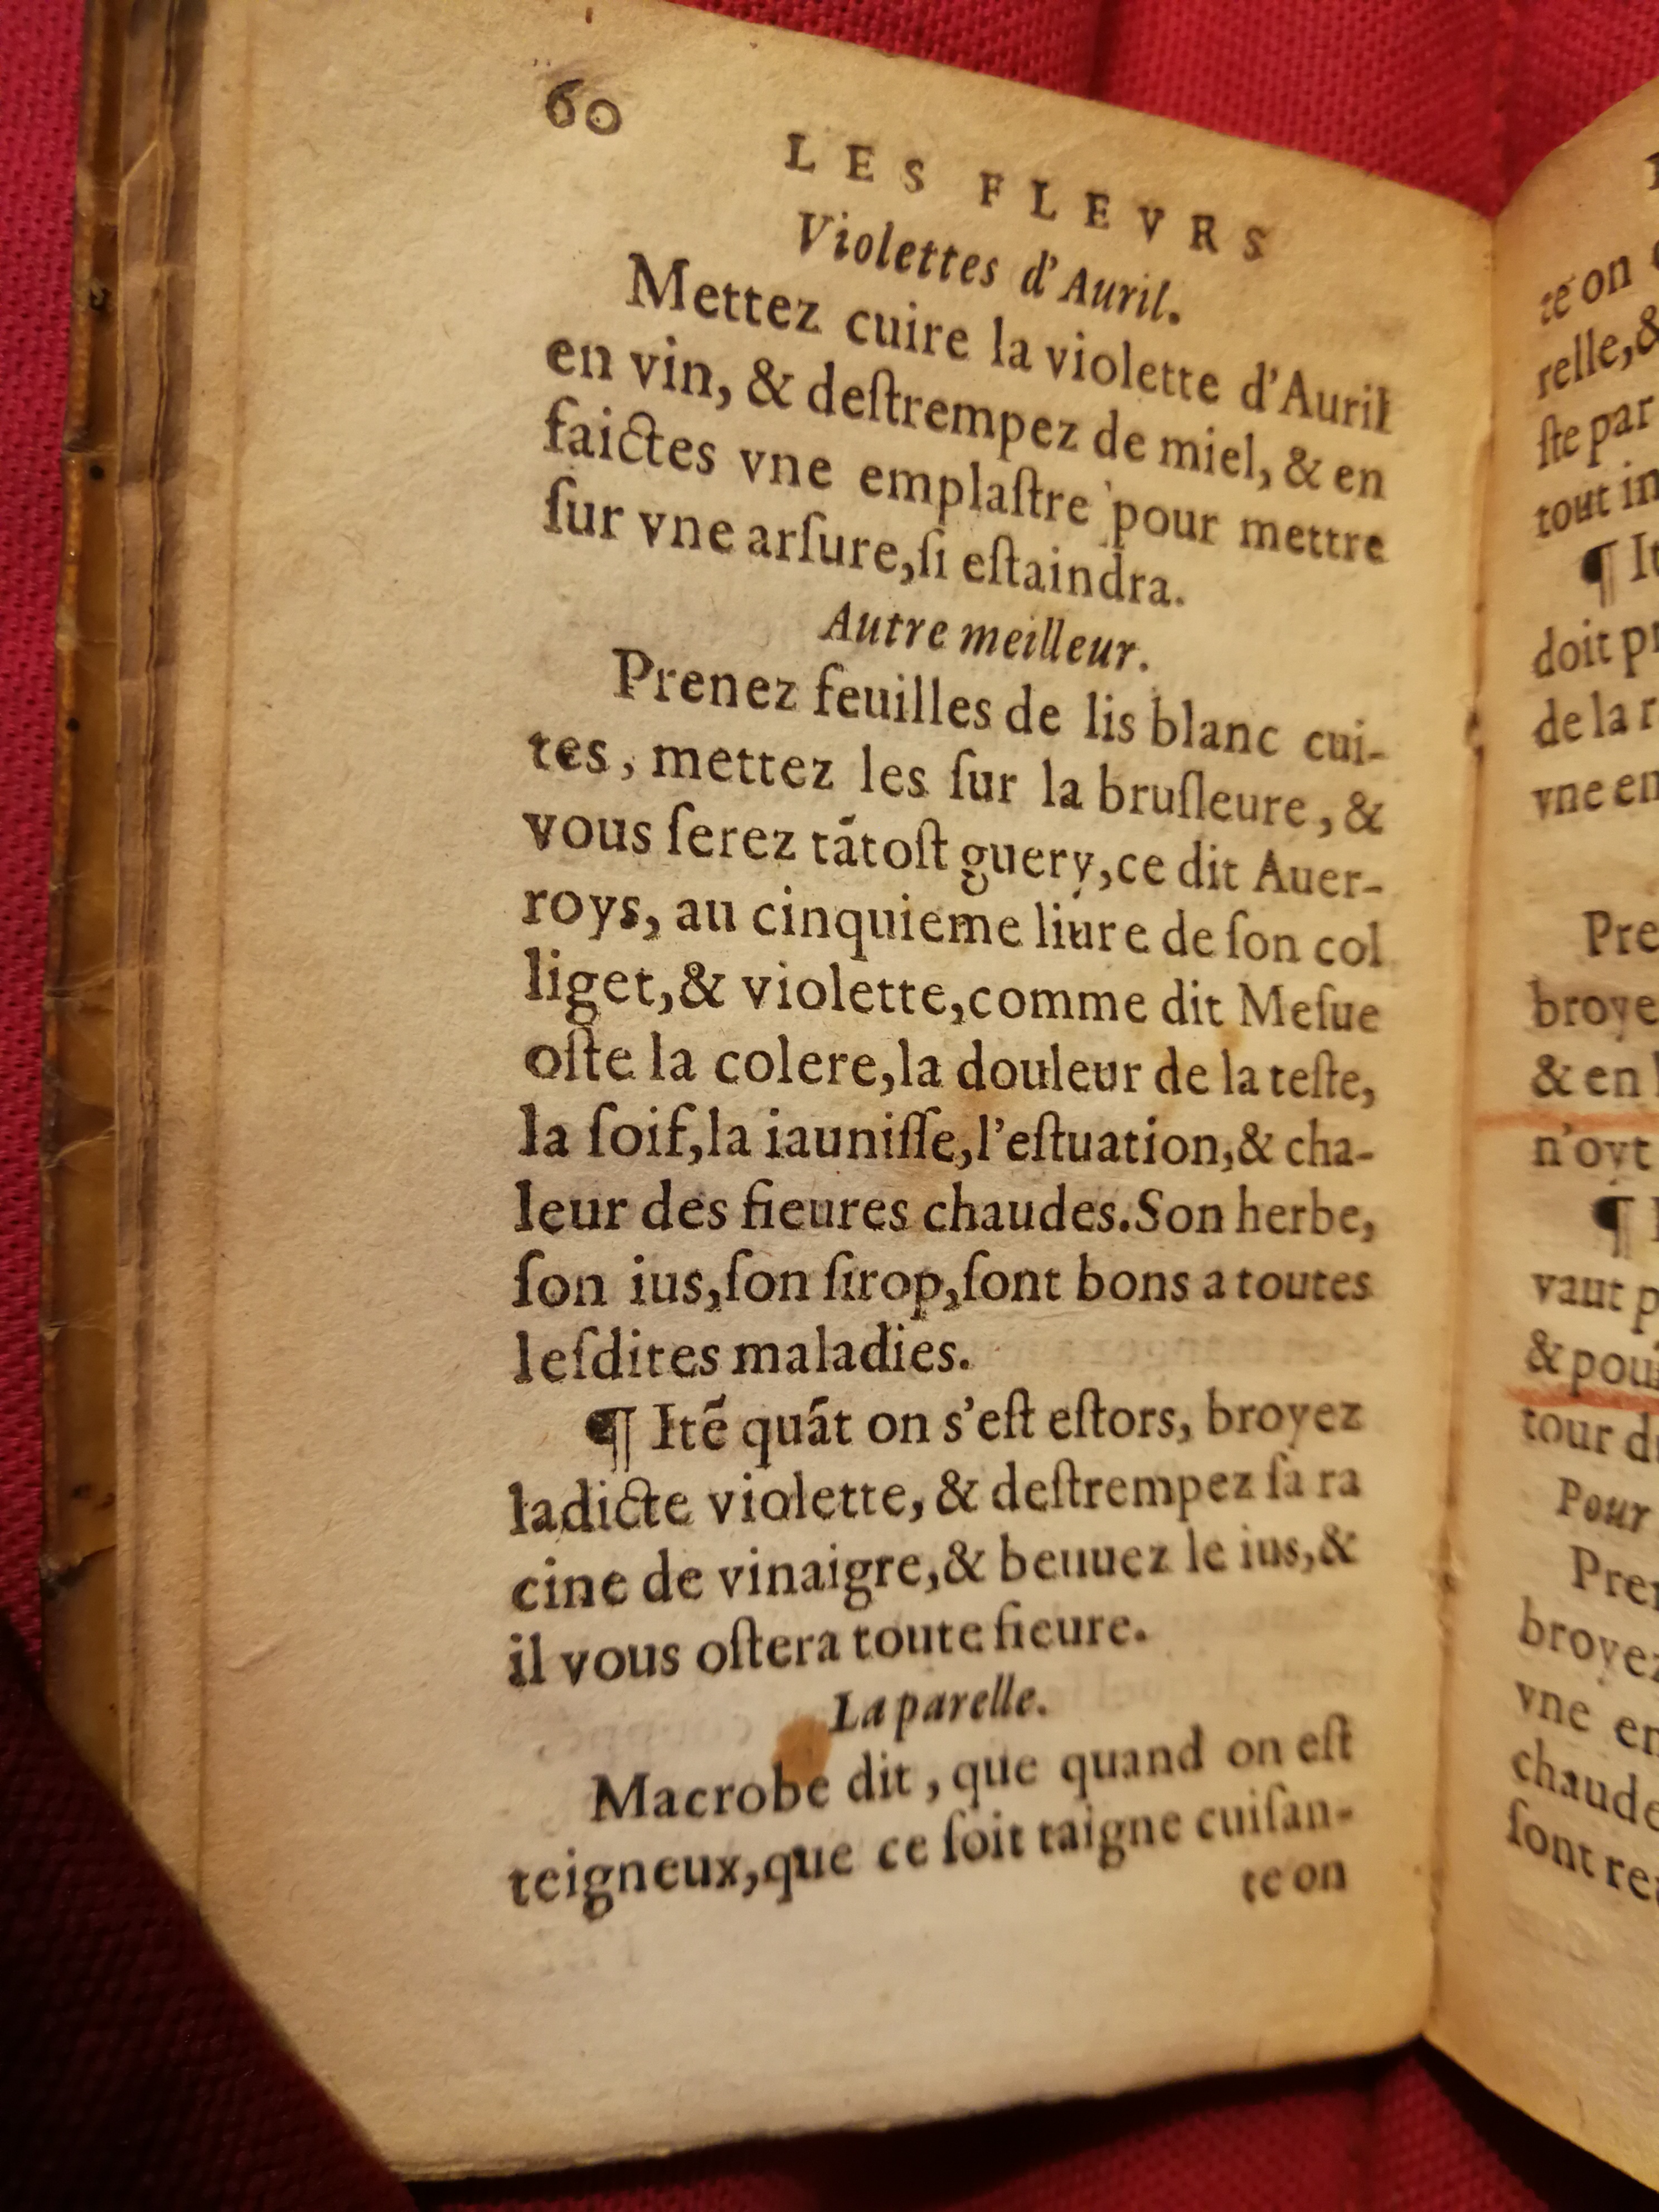 60
LES FLEVRS
Violettes d'Auril.
Mettez cuire la violette d'Auril
en vin, & deſtrempez de miel, & en
faictes vne emplaſtre pour mettre
ſur vne arſure,ſi eſtaindra.
Autre meilleur.
Prenez feuilles de lis blanc cui-
tes, mettez les ſur la bruſleure, &
vous ſerez tãtoſt guery,ce dit Auer-
roys, au cinquieme liure de ſon col
liget,& violette,comme dit Meſue
oſte la colere,la douleur de la teſte,
la ſoif,la iauniſſe,l'eſtuation,& cha-
leur des fieures chaudes.Son herbe,
ſon ius,ſon ſirop,ſont bons a toutes
leſdites maladies.
¶ Itẽ quãt on s'eſt eſtors, broyez
ladicte violette, & deſtrempez ſa ra
cine de vinaigre,& beuuez le ius,&
il vous oſtera toute fieure.
La parelle.
Macrobe dit, que quand on eſt
teigneux,que ce ſoit taigne cuiſan-
te on
te on
relle,&
ſte par
tout in
¶ It
doit pr
de la r
vne en
Pre
broye
& en
n'oyt
¶
vaut p
& pour
tour d
Pour
Pren
broyez
vne en
chaude
ſont re